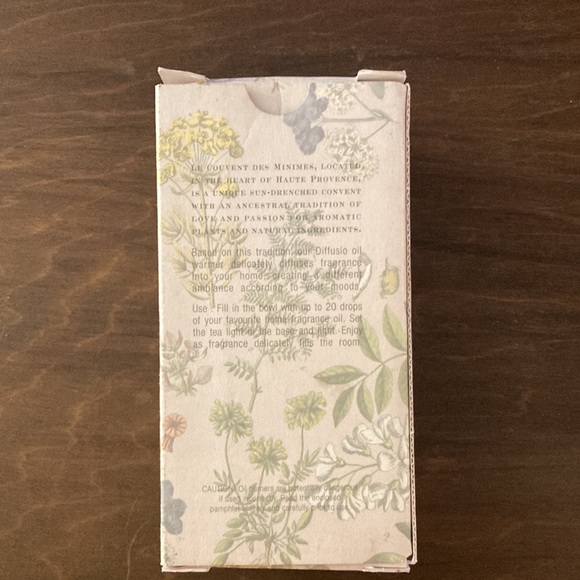 LE COUVENT DES MINIMES, LOCATED
IN THE HEART OF HAUTE PROVENCE,
IS A UNIQUE SUN-DRENCHED CONVENT
WITH AN ANCESTRAL TRADITION OF
LOVE AND PASSION FOR AROMATIC
PLANTS AND NATURAL INGREDIENTS.
Based on this tradition, our Diffusio oil
warmer delicately diffuses fragrance
into your home, creating a different
ambiance according to your moods.
Use : Fill in the bowl with up to 20 drops
of your favourite home fragrance oil. Set
the tea light in the base and light. Enjoy
as fragrance delicately fills the room.
CAUTION: Oil burners are potentially dangerous
if used incorrectly. Read the enclosed
pamphlet and carefully